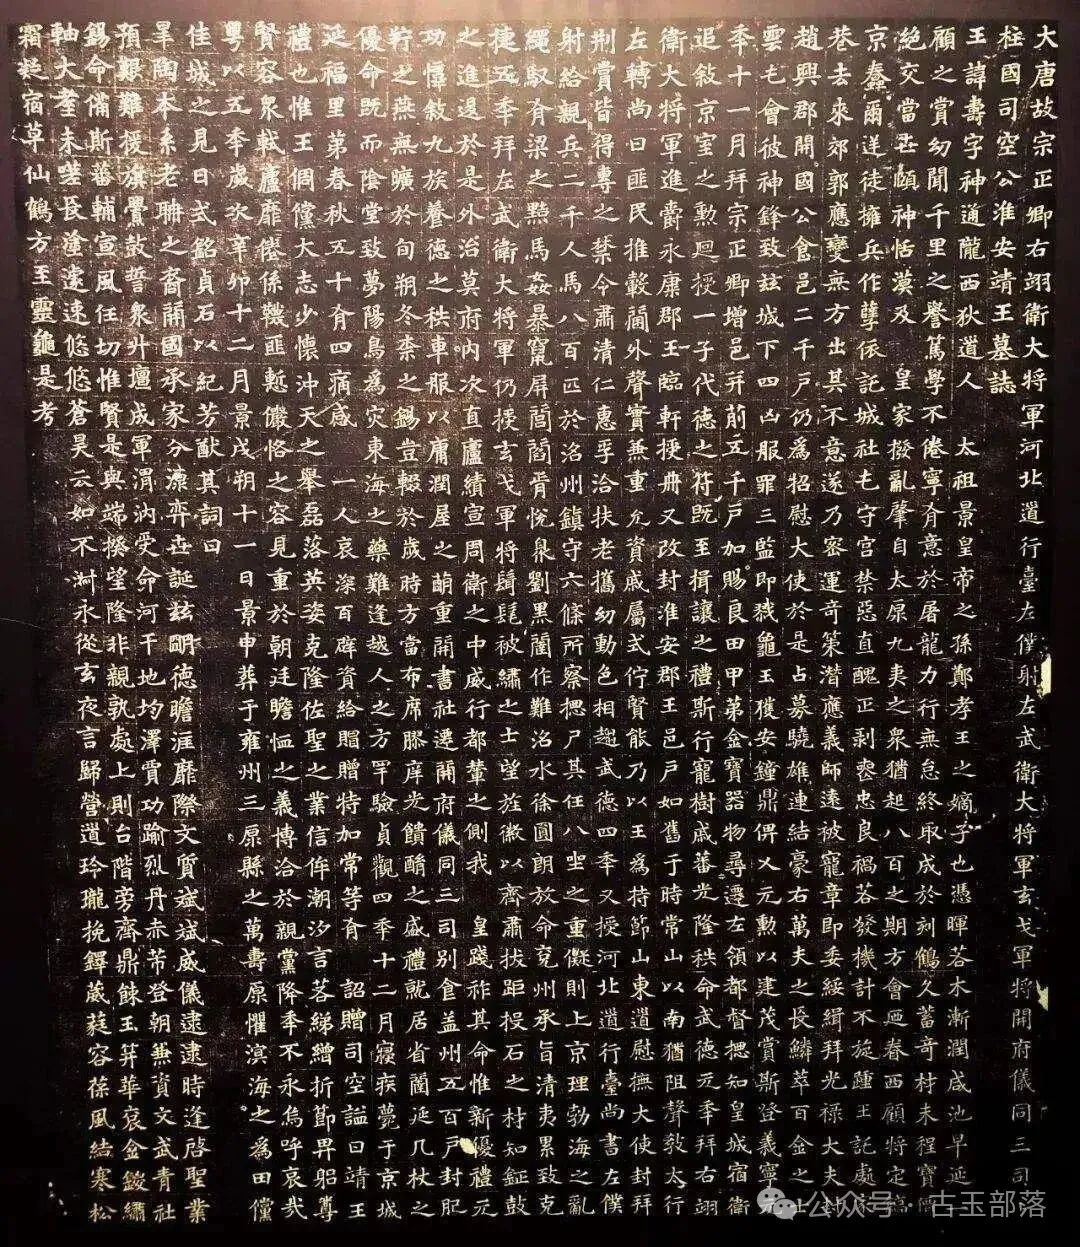 大唐故宗正卿右翊衛大將軍河北道行臺左僕射左武衛大將軍玄戈軍將開府儀同三司
柱國司空公淮安靖王墓誌
王諱壽字神通隴西狄道人 太祖景皇帝之孫鄭孝王之嫡子也憑暉若木漸潤咸池早延一
顧之賞幼聞千里之譽篤學不倦寧肎意於屠龍力行無怠終取成於刻鶴久蓄奇材未程寶
絕交當丗頤神恬漠及 皇家撥亂肇自太原九夷之衆猶起八百之期方會迺眷西顧將定鎬
京蠢爾送徒擁兵作孽依託城社屯守宮禁惡直醜正剥喪忠良禍若發機計不旋踵王託處家
巷去來郊郭應變無方出其不意遂乃密運奇策潛應義師遠被寵章即委綏緝拜光祿大夫封
趙興郡開國公食邑二千戶仍爲招慰大使於是占募驍雄連結豪右萬夫之長鱗萃百金之士
雲屯會彼神鋒致玆城下四凶服罪三監即戮龜玉獲安鐘鼎俱乂元勳以建茂賞斯登義寧元
年十一月拜宗正卿增邑并前五千戶加賜良田甲第金寶器物尋遷左領都督揔知皇城宿衛
追敘京室之勲迴授一子代德之符既至揖讓之禮斯行寵樹戚蕃光隆秩命武德元年拜右翊
衛大將軍進爵永康郡王臨軒授冊又改封淮安郡王邑戶如舊于時常山以南猶阻聲教太行
左轉尚曰匪民推轂閫外聲實兼重允資戚屬式佇賢能乃以王爲持節山東道慰撫大使封拜
刑賞皆得專之禁令肅清仁惠孚洽扶老攜幼動色相趨武德四年又授河北道行臺尚書左僕
射給親兵二千人馬八百匹於洺州鎮守六條所察揔尸其任八坐之重儗則上京理勃海之亂
繩馭肎梁之黠馬姦暴竄屏閭閻胥悅泉劉黑闥作難洺水徐圓朗放命兗州承旨清夷累致克
捷五年拜左武衛大將軍仍授玄戈軍將髶髦被繡之士望旌徽以齊肅拔距投石之材知鉦鼓
之進退於是外治莫府內次直廬績宣周衛之中威行都輦之側我 皇踐祚其命惟新優禮元
功惇敘九族養德之秩車服以庸潤屋之蕑重開書社遷開府儀同三司別食益州五百戶封肥
狞之燕無曠於旬朔冬柰之錫豈輟於歲時方當布席膠庠光饋酳之盛禮就居省闥延几杖之
優命既而陰堂致夢陽烏爲灾東海之藥難逢越人之方罕驗貞觀四年十二月寢疾薨于京城
延福里第春秋五十肎四痛感 一人哀深百辟資給賵贈特加常等肎 詔贈司空謚曰靖王
禮也惟王倜儻大志少懷沖天之舉磊落英姿克隆佐聖之業信侔潮汐言若綈繒折節畀躬尊
賢容衆軾廬靡倦係韈匪慙儼恪之容見重於朝廷瞻恤之義博洽於親黨降年不永烏呼哀哉
粵以五年歲次辛卯十二月景戌朔十一日景申葬于雍州三原縣之萬壽原懼濱海之爲田儻
佳城之見日式銘貞石以紀芳猷其詞曰
睾陶本系老聃之裔開國承家分源弈丗誕玆明德瞻涯靡際文質斌斌威儀逮逮時逢啓聖業
預艱難援旗舋鼓誓衆升壇成軍渭汭受命河干地均澤賈功踰烈丹赤芾登朝兼資文武青社
錫命備斯蕃輔宣風任切惟賢是與端揆望隆非親孰處上則台階旁齊鼎餗玉笄華衮金鋑繡
軸大耋未嗟長塗遽速悠悠蒼昊云如不淑永從玄夜言歸營道玲瓏挽鐸葳蕤容葆風結寒松
霜凝宿草仙鶴方至靈龜是考
公众号·古玉部落